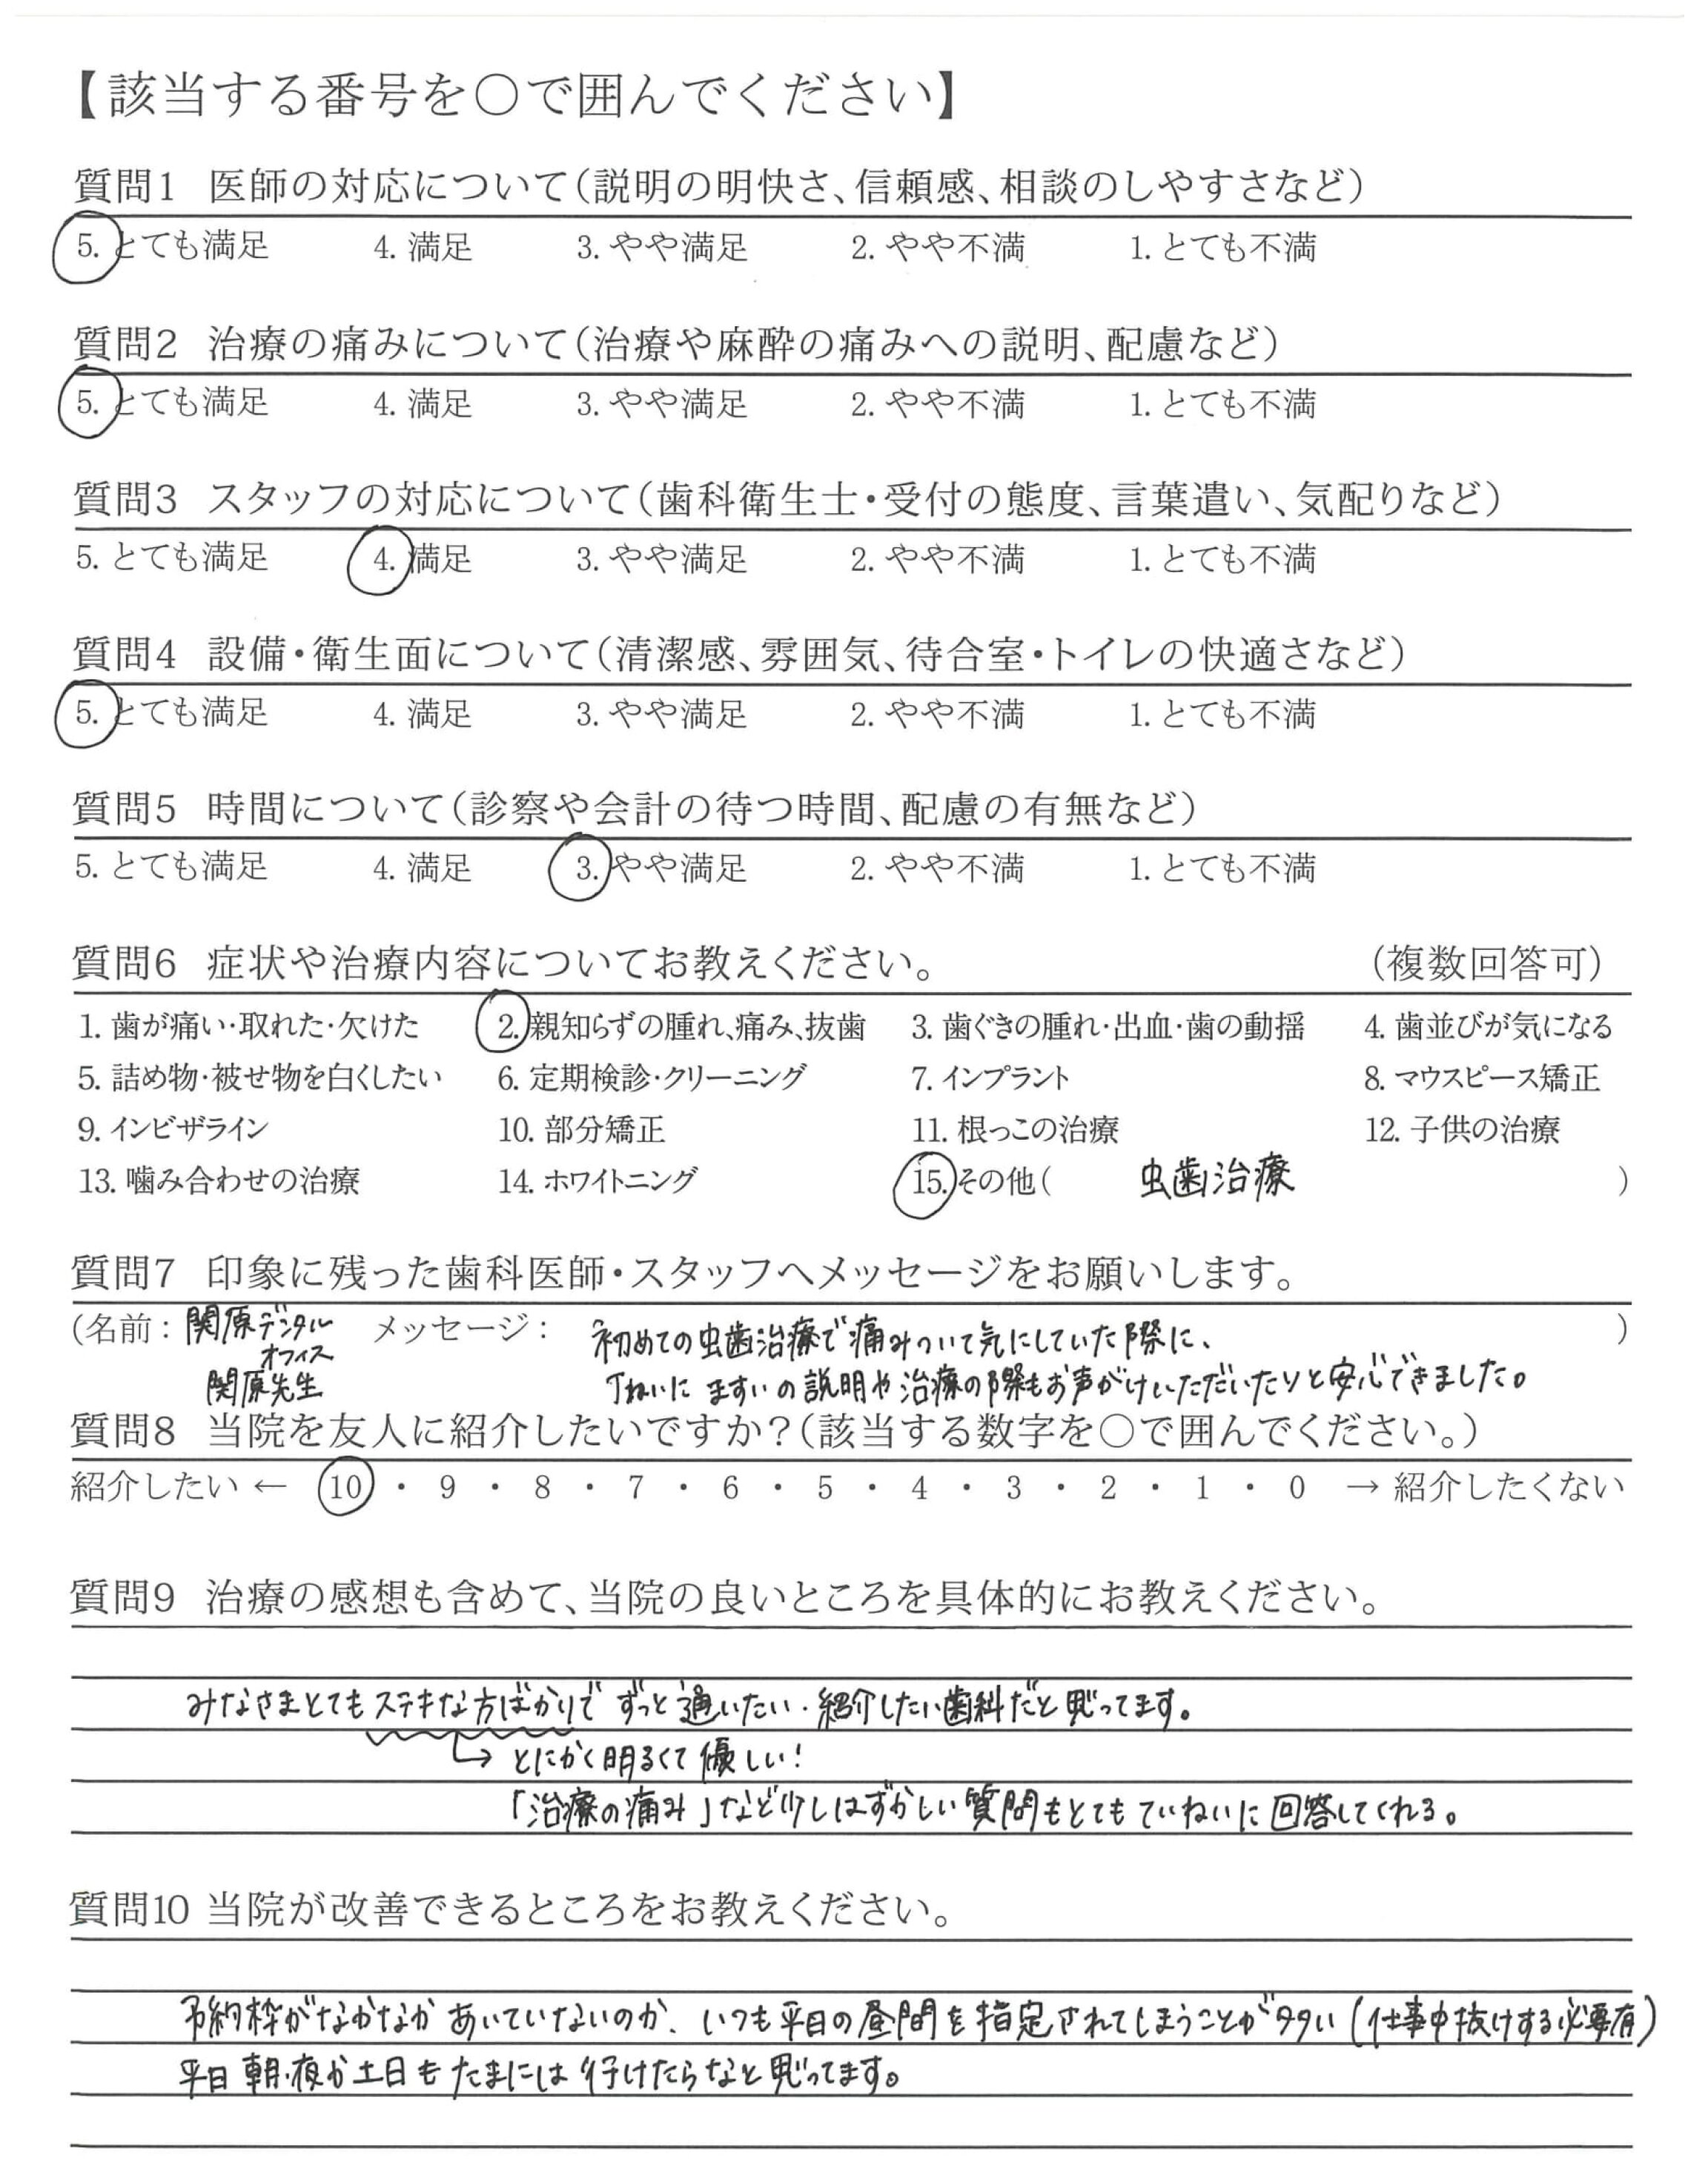 【該当する番号を○で囲んでください】
質問1 医師の対応について(説明の明快さ、信頼感、相談のしやすさなど)
5. とても満足 4. 満足 3. やや満足 2. やや不満 1. とても不満
質問2 治療の痛みについて(治療や麻酔の痛みへの説明、配慮など)
5. とても満足 4. 満足 3. やや満足 2. やや不満 1. とても不満
質問3 スタッフの対応について(歯科衛生士・受付の態度、言葉遣い、気配りなど)
5. とても満足 4. 満足 3. やや満足 2. やや不満 1. とても不満
質問4 設備・衛生面について(清潔感、雰囲気、待合室・トイレの快適さなど)
5. とても満足 4. 満足 3. やや満足 2. やや不満 1. とても不満
質問5 時間について(診察や会計の待つ時間、配慮の有無など)
5. とても満足 4. 満足 3. やや満足 2. やや不満 1. とても不満
質問6 症状や治療内容についてお教えください。 (複数回答可)
1. 歯が痛い・取れた・欠けた 2. 親知らずの腫れ、痛み、抜歯 3. 歯ぐきの腫れ・出血・歯の動揺 4. 歯並びが気になる
5. 詰め物・被せ物を白くしたい 6. 定期検診・クリーニング 7. インプラント 8. マウスピース矯正
9. インビザライン 10. 部分矯正 11. 根っこの治療 12. 子供の治療
13. 噛み合わせの治療 14. ホワイトニング 15. その他( 虫歯治療 )
質問7 印象に残った歯科医師・スタッフへメッセージをお願いします。
(名前: 関原デンタル メッセージ: 初めての虫歯治療で痛みついて気にしていた際に、 )
オフィス
関原先生 丁ねいにますいの説明や治療の際もお声がけいただいたりと安心できました。
質問8 当院を友人に紹介したいですか?(該当する数字を○で囲んでください。)
紹介したい ← 10 ・ 9 ・ 8 ・ 7 ・ 6 ・ 5 ・ 4 ・ 3 ・ 2 ・ 1 ・ 0 → 紹介したくない
質問9 治療の感想も含めて、当院の良いところを具体的にお教えください。
みなさまとてもステキな方ばかりでずっと通いたい・紹介したい歯科だと思ってます。
→ とにかく明るくて優しい!
「治療の痛み」など少しはずかしい質問もとてもていねいに回答してくれる。
質問10 当院が改善できるところをお教えください。
予約枠がなかなかあいていないのか、いつも平日の昼間を指定されてしまうことが多い(仕事中抜けする必要有)
平日朝・夜か土日もたまには行けたらなと思ってます。